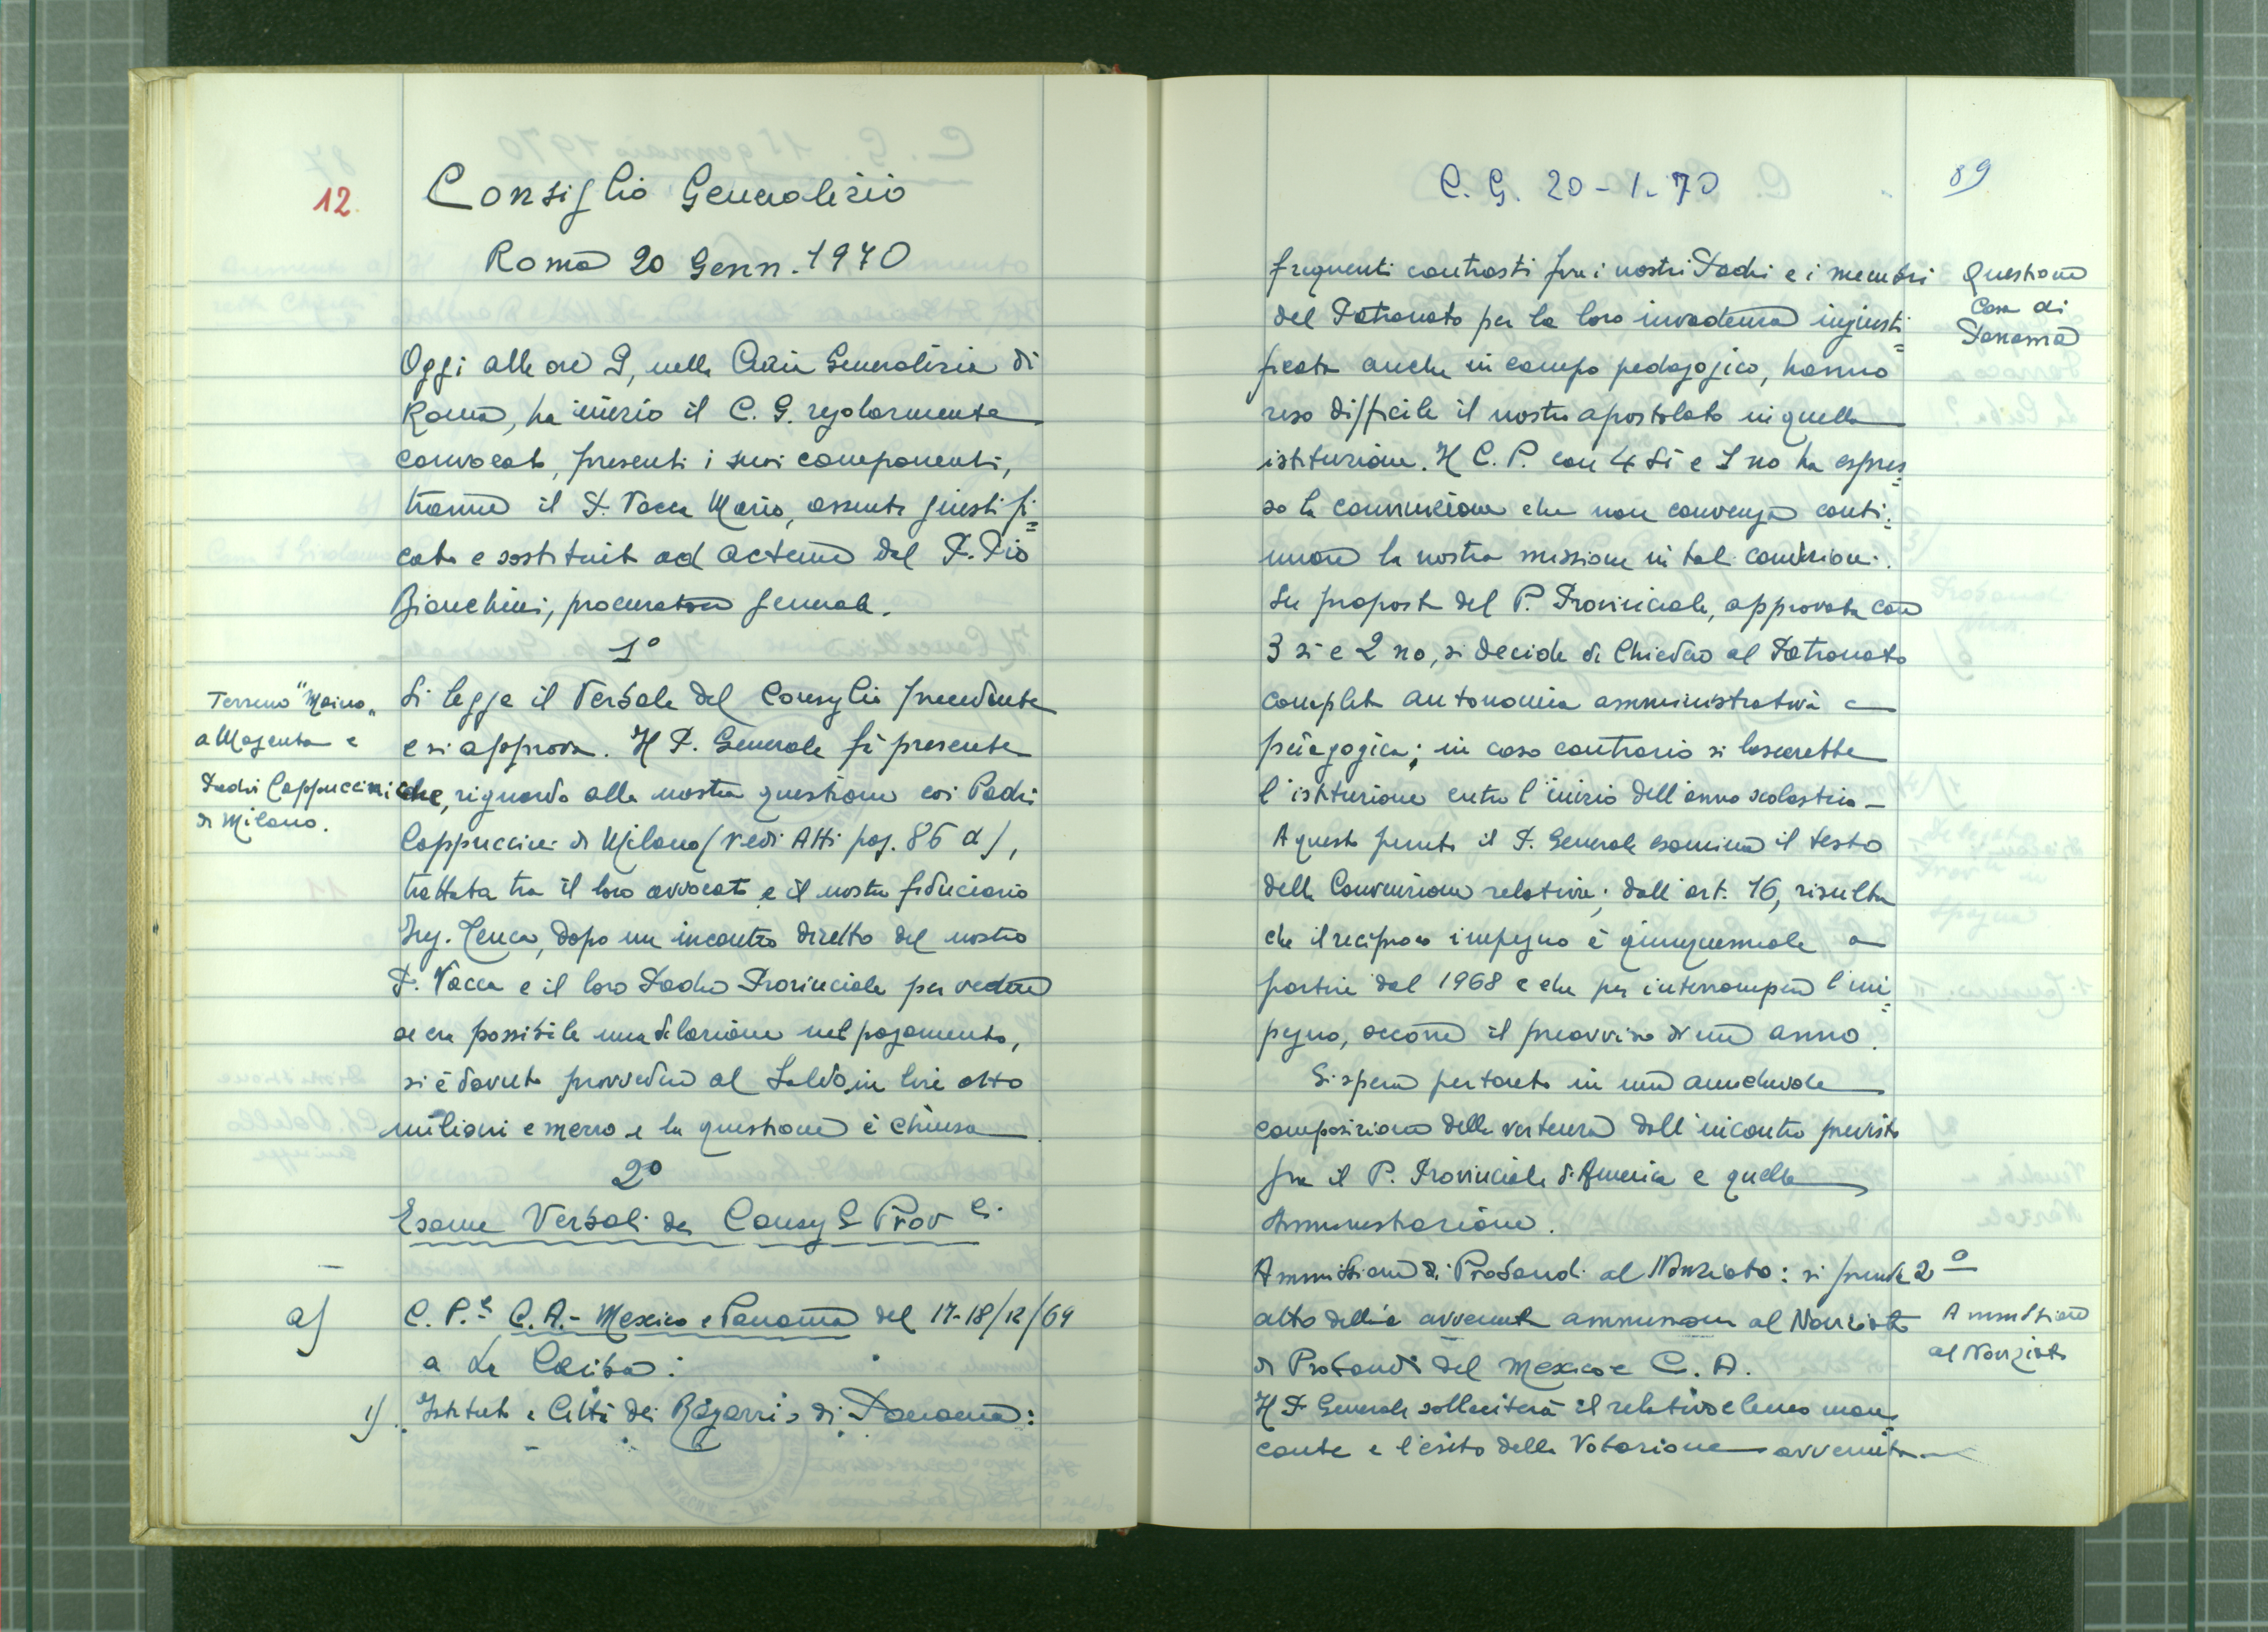 12
Consiglio Generalizio
Roma 20 Genn. 1970
Oggi alle ore 9, nella Curia Generalizia di
Roma, ha inizio il C. G. regolarmente
convocato, presenti i suoi componenti,
tranne il P. Vacca Mario, assente giustifi=
cato e sostituito ad actum dal P. Pio
Bianchini, procuratore generale.
1º
Terreno "Maino„
a Magenta e
Padri Cappuccini
di Milano.
Si legge il Verbale del Consiglio precedente
e si approva. Il P. Generale fa presente
che, riguardo alla nostra questione coi Padri
Cappuccini di Milano (vedi Atti pag. 86 a),
trattata tra il loro avvocato e il nostro fiduciario
Ing. Tenca, dopo un incontro diretto del nostro
P. Vacca e il loro Padre Provinciale per vedere
se era possibile una dilazione nel pagamento,
si è dovuto provvedere al Saldo, in lire otto
milioni e mezzo e la questione è chiusa.
2º
Esame Verbali dei Consigli Prov.li
a)
C. P.le C. A. - Mexico e Panamà del 17-18/12/69
a La Ceiba:
1) Istituto e Città dei Ragazzi di Panamà:
C. G. 20-1-70
89
Questione
Casa di
Panamà
frequenti contrasti fra i nostri Padri e i membri
del Patronato per la loro invadenza ingiusti=
ficata anche in campo pedagogico, hanno
reso difficile il nostro apostolato in quella
istituzione. Il C. P. con 4 sì e 1 no ha espres=
so la convinzione che non convenga conti=
nuare la nostra missione in tali condizioni.
Su proposta del P. Provinciale, approvata con
3 si e 2 no, si decide di chiedere al Patronato
completa autonomia amministrativa e
pedagogica; in caso contrario si lascerebbe
l'istituzione entro l'inizio dell'anno scolastico -
A questo punto il P. Generale esamina il testo
della Convenzione relativa; dall'art. 16, risulta
che il reciproco impegno è quinquennale a
partire dal 1968 e che per interrompere l'im=
pegno, occorre il preavviso di un anno.
Si spera pertanto in una amichevole
composizione della vertenza dall'incontro previsto
fra il P. Provinciale d'America e quella
Amministrazione.
Ammissione di Probandi al Noviziato: si prende
2º
atto della avvenuta ammissione al Noviziato
Ammissione
al Noviziato
di Probandi del Mexico e C. A.
Il P. Generale solleciterà il relativo elenco man=
cante e l'esito della Votazione avvenuta.